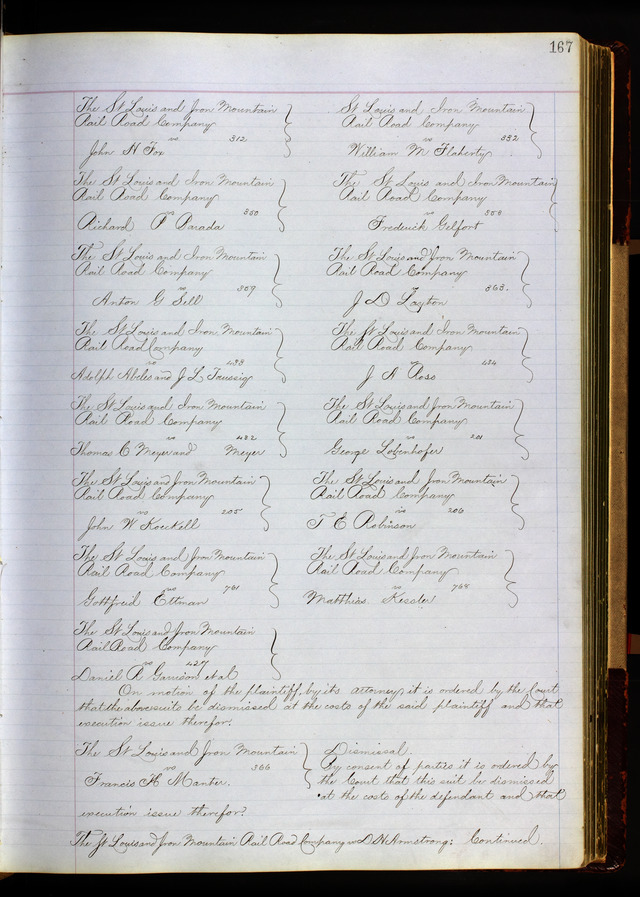 167
The St Louis and Iron Mountain
Rail Road Company
vs 312
John H Fox
St Louis and Iron Mountain
Rail Road Company
vs 332
William M Flaherty
The St Louis and Iron Mountain
Rail Road Company
vs 350
Richard P Parada
The St Louis and Iron Mountain
Rail Road Company
vs 358
Frederick Gelfort
The St Louis and Iron Mountain
Rail Road Company
vs 359
Anton G Sell
The St Louis and Iron Mountain
Rail Road Company
vs 363.
J D Layton
The St Louis and Iron Mountain
Rail Road Company
vs 433
Adolph Abeles and J L Taussig
The St Louis and Iron Mountain
Rail Road Company
vs 434
J A Ross
The St Louis and Iron Mountain
Rail Road Company
vs 442
Thomas C Meyer and Meyer
The St Louis and Iron Mountain
Rail Road Company
vs 201
George Lobenhofer
The St Louis and Iron Mountain
Rail Road Company
vs 205
John W
The St Louis and Iron Mountain
Rail Road Company
vs 206
T E Robinson
The St Louis and Iron Mountain
Rail Road Company
vs 761
Gottfreid Ettman
The St Louis and Iron Mountain
Rail Road Company
vs 764
Matthias Kessler
The St Louis and Iron Mountain
Rail Road Company
vs 427
Daniel R Garrison et al
On motion of the plaintiff, by its attorney, it is ordered by the Court
that the above suits be dismissed at the costs of the said plaintiff and that
execution issue therefor.
The St Louis and Iron Mountain
vs 366
Francis H Manter.
Dismissal.
By consent of parties it is ordered by
the Court that this suit be dismissed
at the costs of the defendant and that
execution issue therefor.
The St Louis and Iron Mountain Rail Road Company vs D H Armstrong: Continued.